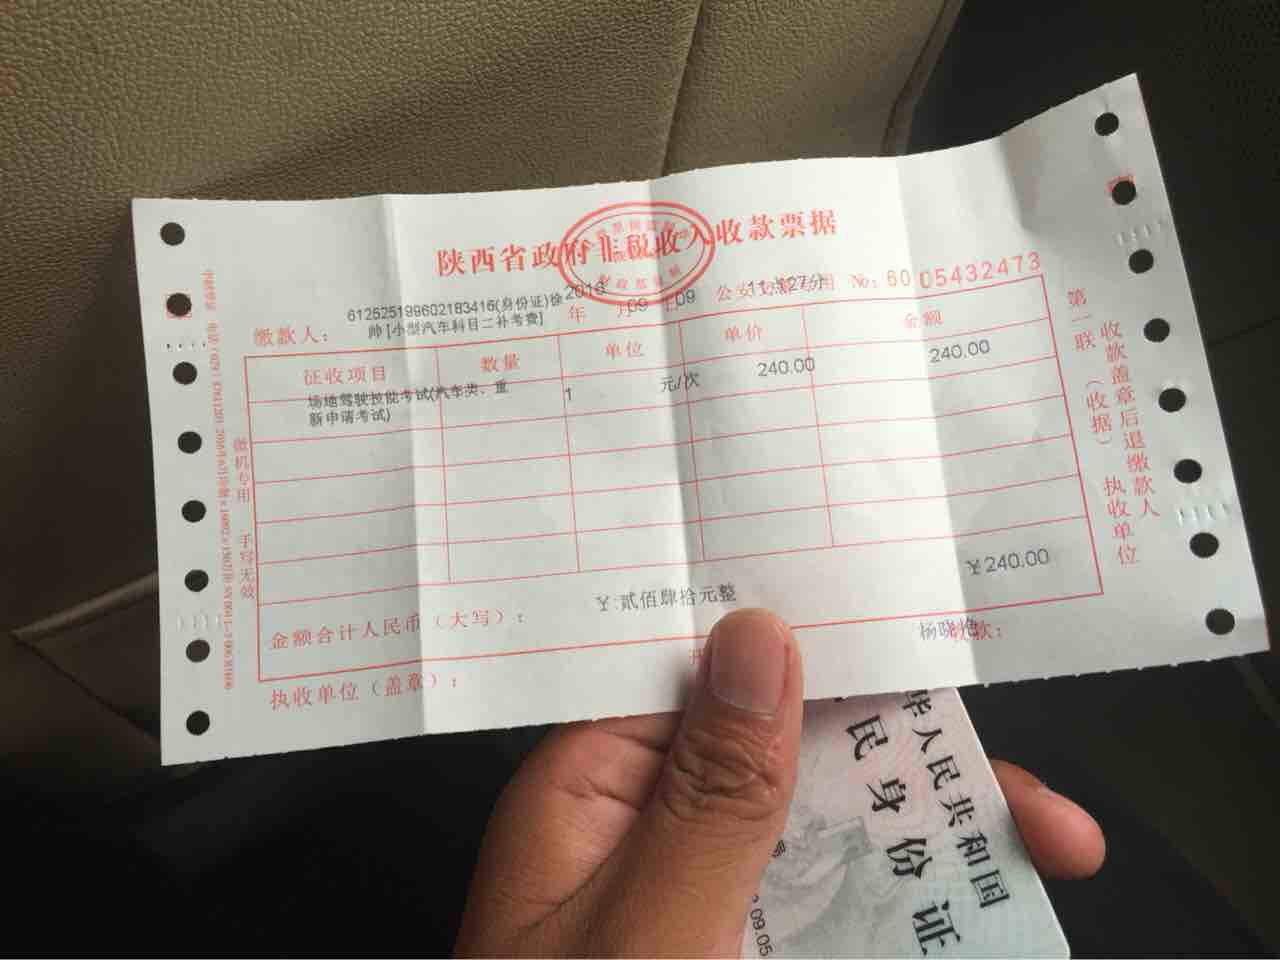 陕西省政府非税收入收款票据
缴款人：
612525199602183416(身份证)徐
帅 [小型汽车科目二补考费]
2016 年 09 月 09
公安交警专用
11点27分
No: 6005432473
征收项目 数量 单位 单价 金额
场地驾驶技能考试(汽车类、重
新申请考试)
1 元/次 240.00 240.00
金额合计人民币（大写）：
￥:贰佰肆拾元整
￥240.00
执收单位（盖章）：
开
杨晓
款：
微机专用 手写无效
第一联（收据）
收款盖章后退缴款人
执收单位
华人民共和国
民身份证
09.05